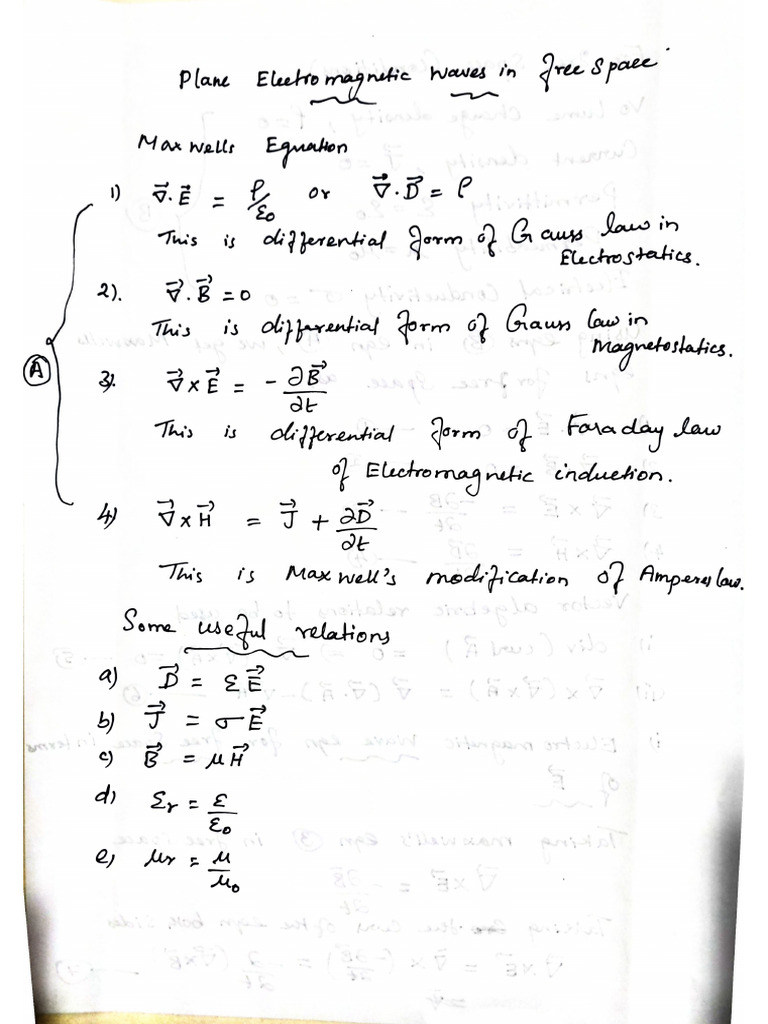 Plane Electromagnetic Waves in free space
Maxwells Equation
1) ∇⃗·E⃗ = ρ/ε₀ or ∇⃗·D⃗ = ρ
This is differential form of Gauss law in
Electrostatics.
2). ∇⃗·B⃗ = 0
This is differential form of Gauss law in
Magnetostatics.
A
3). ∇⃗×E⃗ = - ∂B⃗/∂t
This is differential form of Faraday law
of Electromagnetic induction.
4) ∇⃗×H⃗ = J⃗ + ∂D⃗/∂t
This is Maxwell's modification of Amperes law.
Some useful relations
a) D⃗ = εE⃗
b) J⃗ = σE⃗
c) B⃗ = μH⃗
d) εr = ε/ε₀
e) μr = μ/μ₀